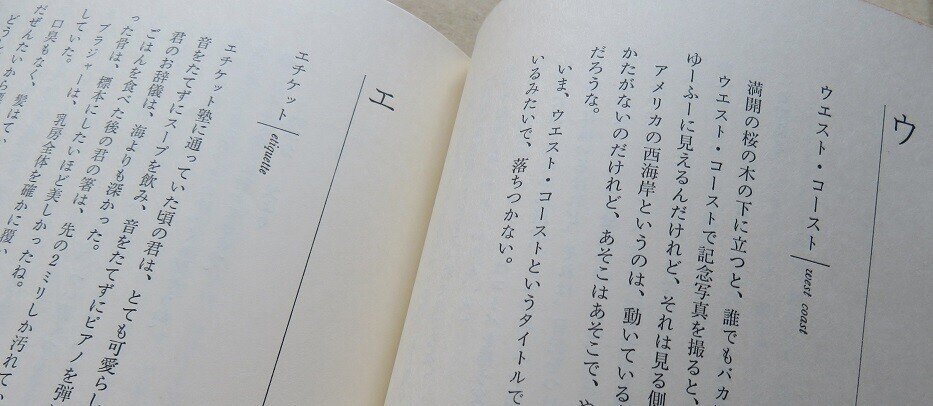 ウ
ウエスト・コースト west coast
満開の桜の木の下に立つと、誰でもバカ
ウエスト・コーストで記念写真を撮ると、
ゆーふーに見えるんだけれど、それは見る側
アメリカの西海岸というのは、動いている
かたがないのだけれど、あそこはあそこで、や
だろうな。
いま、ウエスト・コーストというタイトルで
いるみたいで、落ちつかない。
エ
エチケット etiquette
エチケット塾に通っていた頃の君は、とても可愛らし
音をたてずにスープを飲み、音をたてずにピアノを弾
君のお辞儀は、海よりも深かった。
ごはんを食べた後の君の箸は、先の2ミリしか汚れて
った骨は、標本にしたいほど美しかったね。
ブラジャーは、乳房全体を確かに覆い
していた。
口臭もなく、髪はて
だぜんたいから